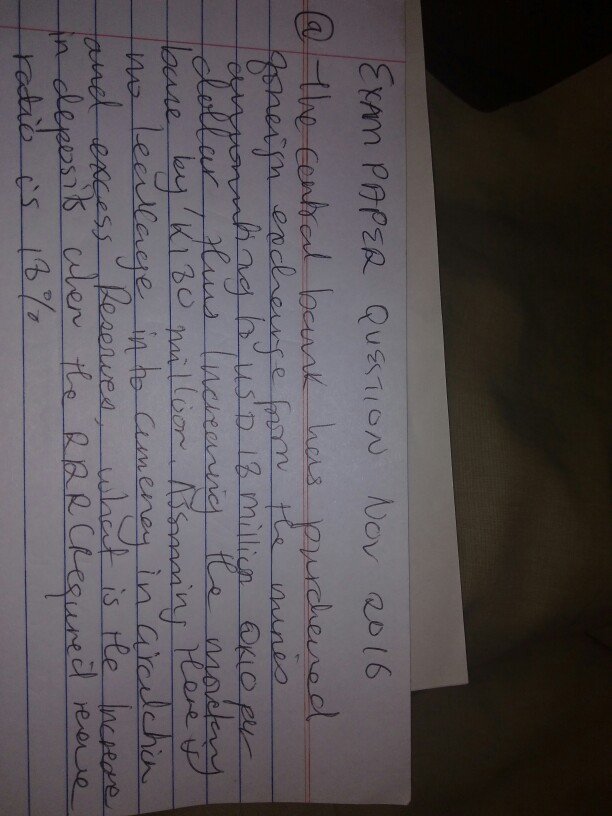 EXAM PAPER QUESTION NOV 2016
(a) The central bank has purchased
foreign exchange from the mines
amounting to USD 18 million @K10 per
dollar, thus increasing the monetary
base by K180 million. Assuming there is
no leakage into currency in circulation
and excess Reserves, what is the increase
in deposits when the RRR (Required reserve
ratio is 18%